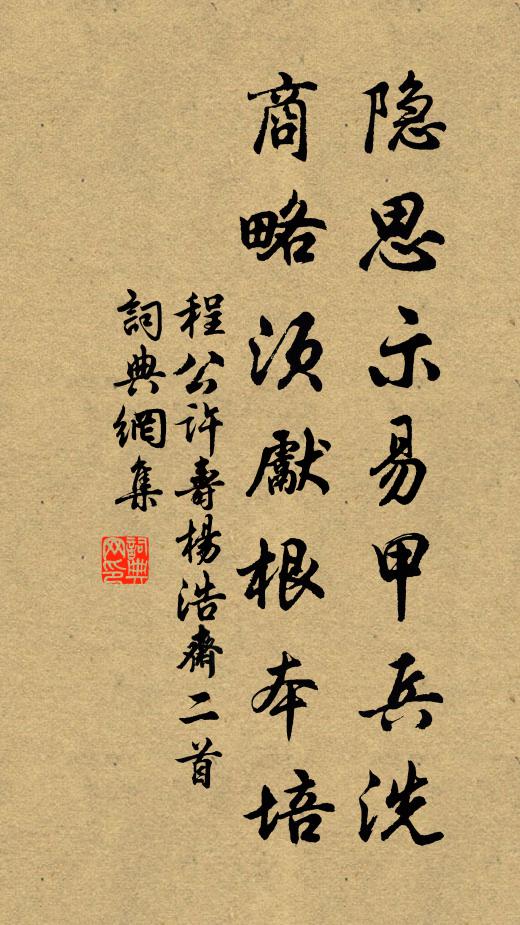 隐思示易甲兵洗
商略须献根本培
程公许寿杨浩斋二首
詞典網集
詞典
网印